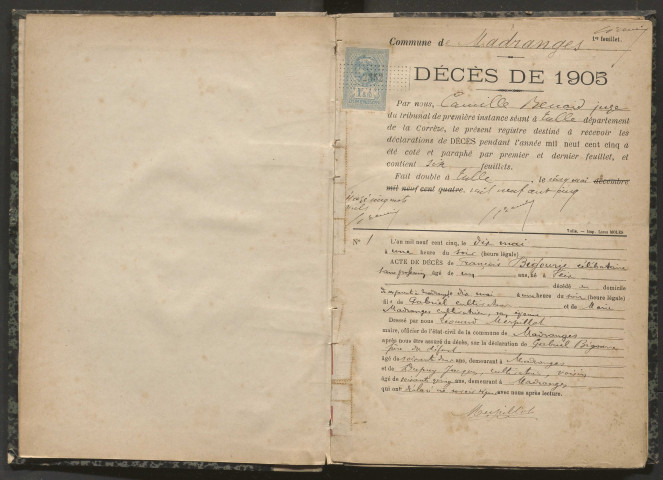 1er feuillet.
Commune de Madranges
DÉCÈS DE 1905
Par nous, Camille juge
du tribunal de première instance séant à Tulle département
de la Corrèze, le présent registre destiné à recevoir les
déclarations de DÉCÈS pendant l'année mil neuf cent cinq a
été coté et paraphé par premier et dernier feuillet, et
contient six feuillets.
Fait double à Tulle, le cinq mai décembre
mil neuf cent quatre. mil neuf cent cinq
Tulle. — Imp.
N° 1 L'an mil neuf cent cinq, le dix mai
à une heure du soir (heure légale)
ACTE DE DÉCÈS de François célibataire
âgé de ans, né à
décédé en domicile
à Madranges dix mai à heure du soir (heure légale)
fils de Gabriel cultivateur et de Marie
Madranges cultivatrice, son épouse
Dressé par nous Léonard Merpillat
maire, officier de l'état civil de la commune de Madranges
après nous être assuré du décès, sur la déclaration de Gabriel
père du défunt
âgé de soixante ans, demeurant à Madranges
et de cultivateur, voisin
âgé de soixante ans, demeurant à Madranges
qui ont déclaré ne savoir signer avec nous après lecture.
Merpillat